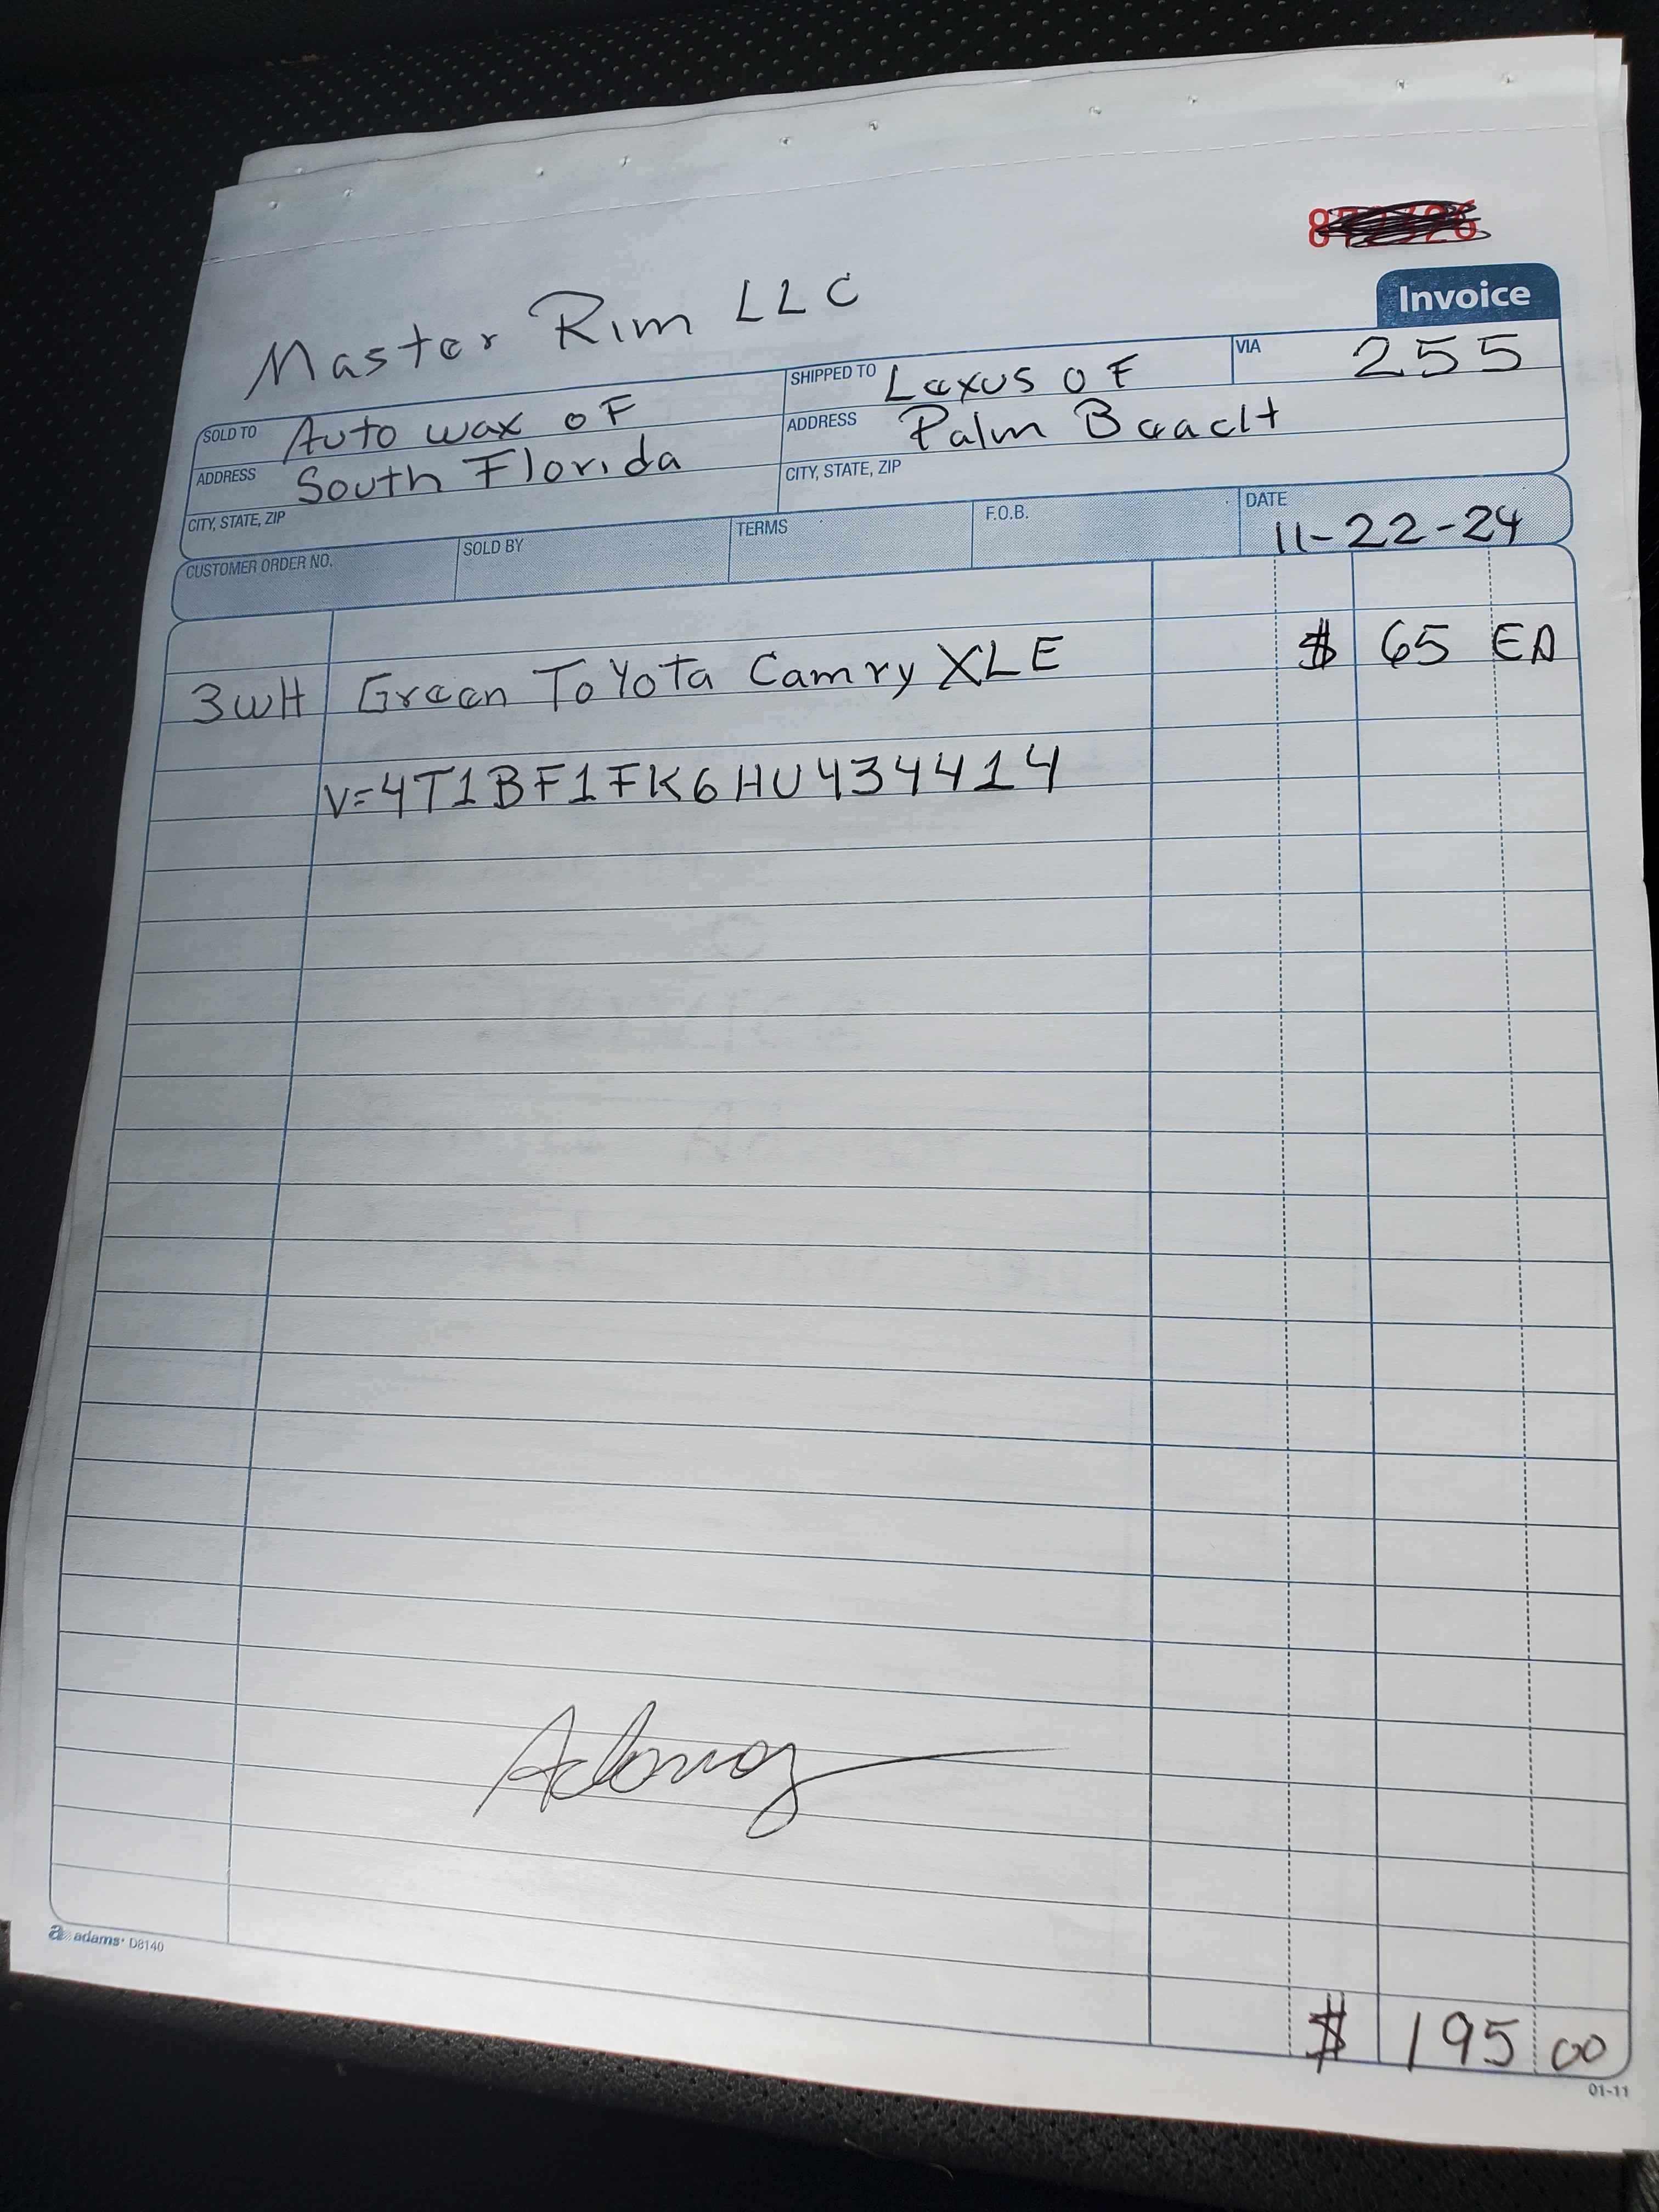 Master Rim LLC
Invoice
SOLD TO Auto wax of
ADDRESS South Florida
CITY, STATE, ZIP
SHIPPED TO Lexus of
ADDRESS Palm Beach
CITY, STATE, ZIP
VIA 255
CUSTOMER ORDER NO. SOLD BY TERMS F.O.B. DATE 11-22-24
3 WH Green Toyota Camry XLE $ 65 EA
V=4T1BF1FK6HU434414
$ 195 00
adams D8140
01-11